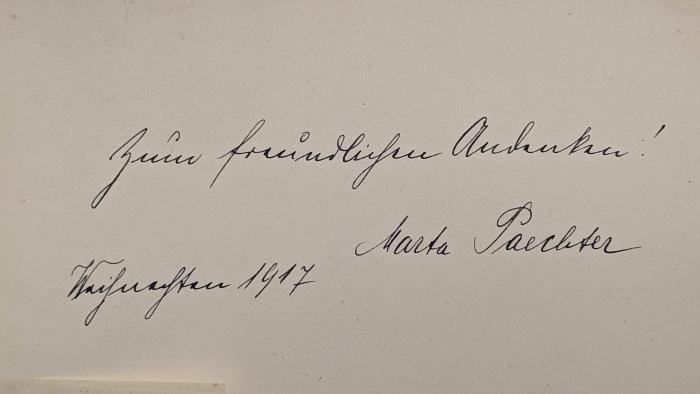 Zum freundlichen Andenken!
Marta Paechter
Weihnachten 1917